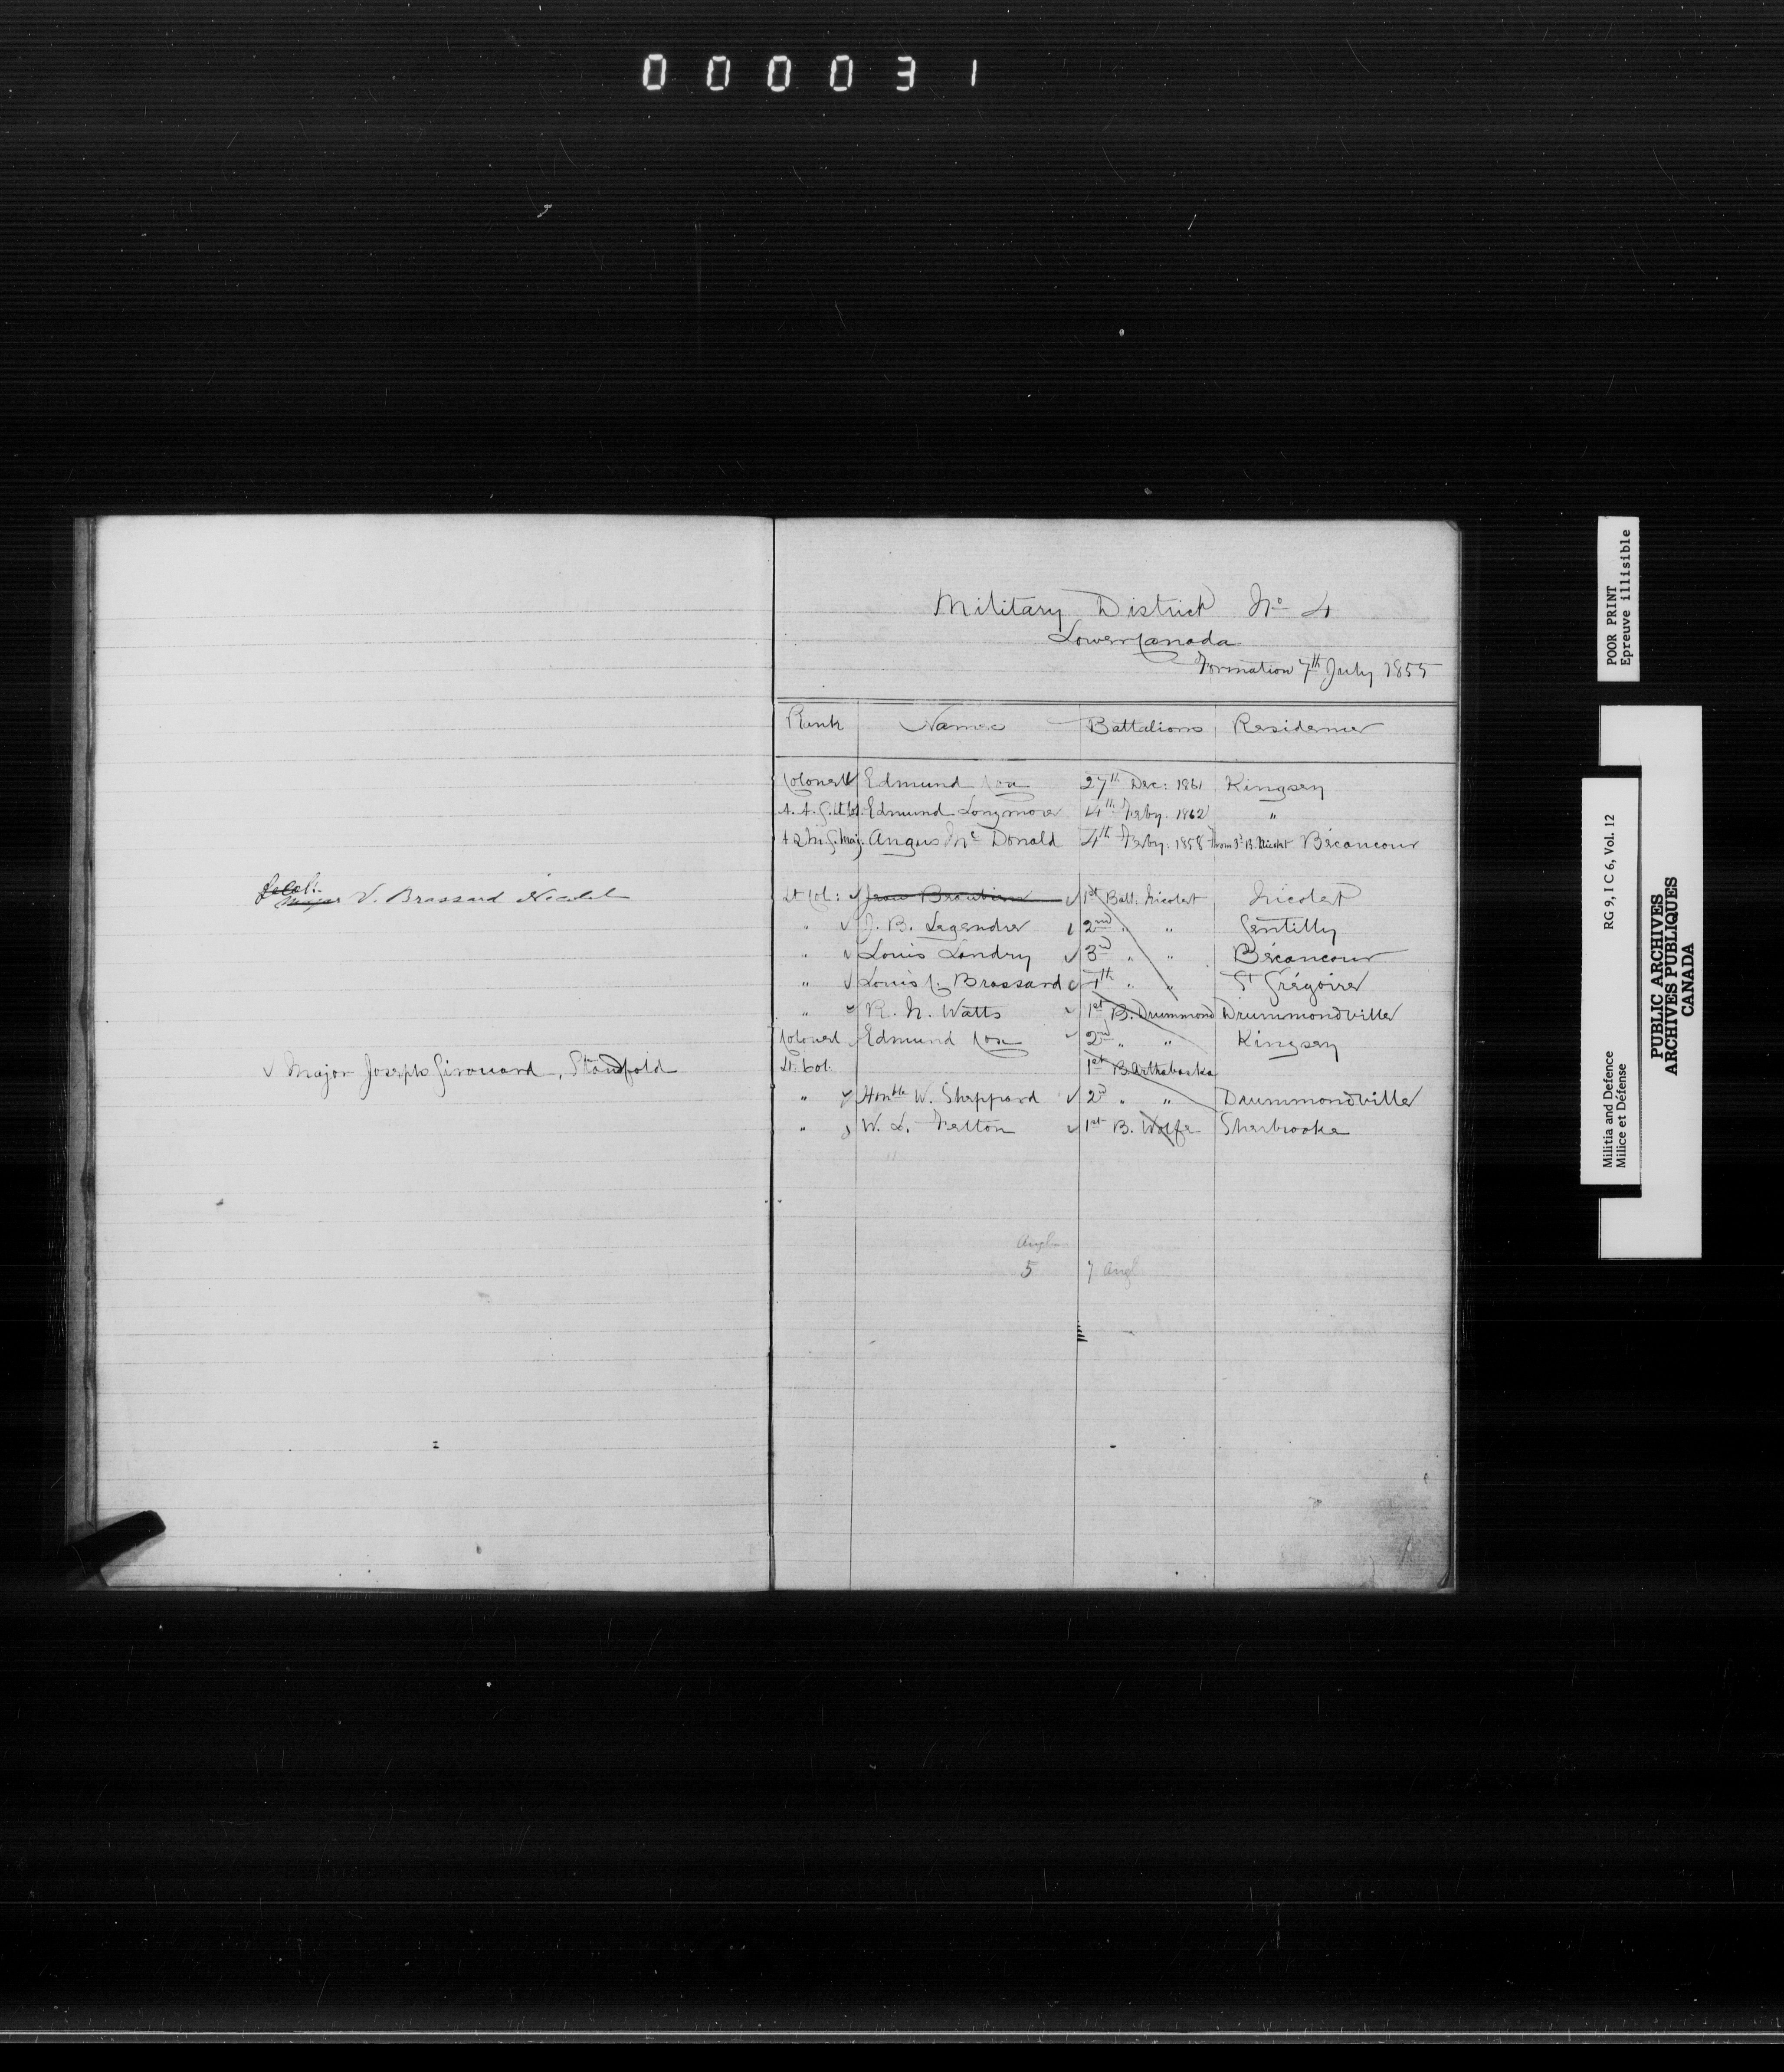 000031
Lt Col.
Major V. Brassard Nicolet
✓ Major Joseph Girouard, Standfold
Military District No 4
Lower Canada
Formation 7th July 1855
Rank Names Battalions Residence
Colonel Edmund Cox 27th Dec: 1861 Kingsey
A. A. G. Lt Col. Edmund Longmore 4th Feby. 1862 "
A Q M G. Maj. Angus Mc Donald 4th Feby. 1858 Bécancour
Lt Col: ✓ ✓ 1st Batt. Nicolet Nicolet
" ✓ J. B. Legendre ✓ 2nd " " Gentilly
" ✓ Louis Landry ✓ 3rd " " Bécancour
" ✓ Louis C. Brassard ✓ 4th " " St Grégoire
" ✓ R. N. Watts ✓ 1st B. Drummond Drummondville
Colonel ✓ Edmund Cox ✓ 2nd " " Kingsey
Lt. Col. 1st B. Arthabaska
" ✓ Honble W. Sheppard ✓ 2d " " Drummondville
" ✓ W. L. Felton ✓ 1st B. Wolfe Sherbrooke
5 7 Angl
POOR PRINT
Epreuve illisible
RG 9, I C 6, Vol. 12
Militia and Defence
Milice et Défense
PUBLIC ARCHIVES
ARCHIVES PUBLIQUES
CANADA